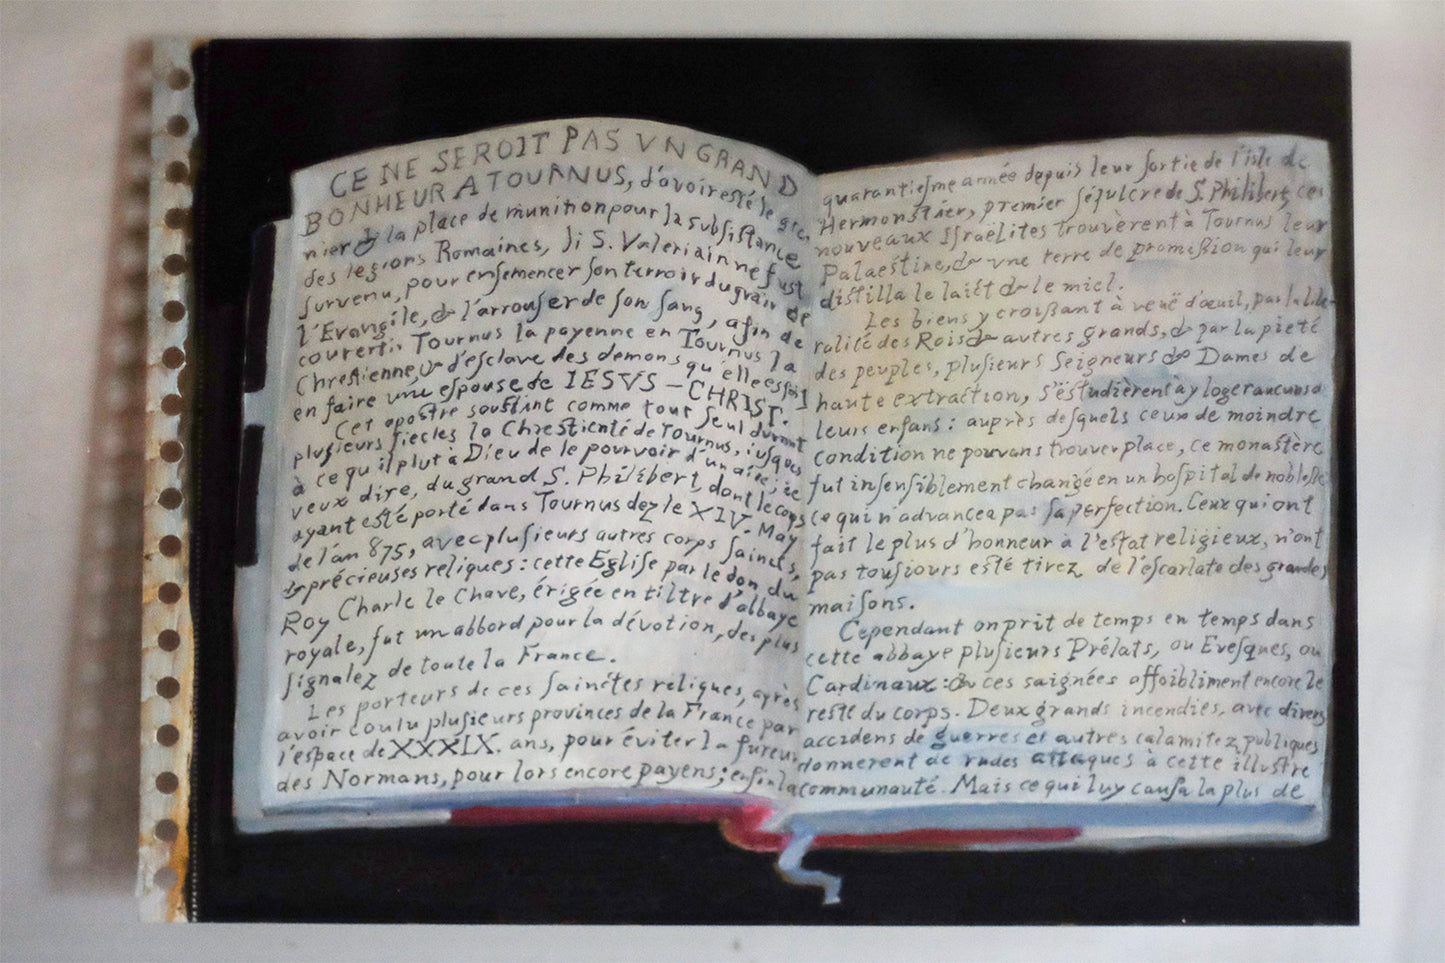 CE NE SEROIT PAS VN GRAND
BONHEUR A TOURNUS, d'avoir esté le gre-
nier & la place de munition pour la subſiſtance
des legions Romaines, ſi S. Valeriain ne fust
ſurvenu, pour enſemencer ſon terroir du grain de
l'Evangile, & l'arrouſer de ſon ſang, afin de
couvertir Tournus la payenne en Tournus la
Chreſtienne, & d'eſclave des demons qu'elle eſtoit
en faire une eſpouse de IESVS – CHRIST.
Cet apoſtre souſtint comme tout ſeul durant
pluſieurs ſiecles la Chreſtienté de Tournus, iuſques
à ce qu'il plut à Dieu de le pourvoir d'un aide; ie
veux dire, du grand S. Philibert, dont le corps
ayant eſté porté dans Tournus dez le XIV. May
de l'an 875, avec pluſieurs autres corps ſaincts,
& précieuses reliques: cette Egliſe par le don du
Roy Charle le Chave, érigée en tiltre d'abbaye
royale, fut un abbord pour la dévotion, des plus
ſignalez de toute la France.
Les porteurs de ces ſainctes reliques, après
avoir coulu pluſieurs provinces de la France par
l'eſpace de XXXIX. ans, pour éviter la fureur
des Normans, pour lors encore payens; enfin la
quarantieſme année depuis leur ſortie de l'iſle de
Hermonstier, premier ſépulcre de S. Philibert, ces
nouveaux Iſraëlites trouvèrent à Tournus leur
Palaeſtine, & vne terre de promeſſion qui leur
diſtilla le laict & le miel.
Les biens y croiſſant à veuë d'œuil, par la libe-
ralité des Rois & autres grands, & par la pieté
des peuples, pluſieurs Seigneurs & Dames de
haute extraction, s'eſtudièrent à y loger aucuns de
leurs enfans: auprès deſquels ceux de moindre
condition ne pouvans trouver place, ce monaſtère
fut inſenſiblement changé en un hoſpital de nobleſſe
ce qui n'advancea pas ſa perfection. Ceux qui ont
fait le plus d'honneur à l'eſtat religieux, n'ont
pas touſiours eſté tirez de l'eſcarlate des grandes
maiſons.
Cependant on prit de temps en temps dans
cette abbaye pluſieurs Prélats, ou Eveſques, ou
Cardinaux: & ces saignées affoibliment encore le
reste du corps. Deux grands incendies, avec divers
accidens de guerres et autres calamitez publiques
donnerent de rudes attaques à cette illuſtre
communauté. Mais ce qui luy cauſa la plus de